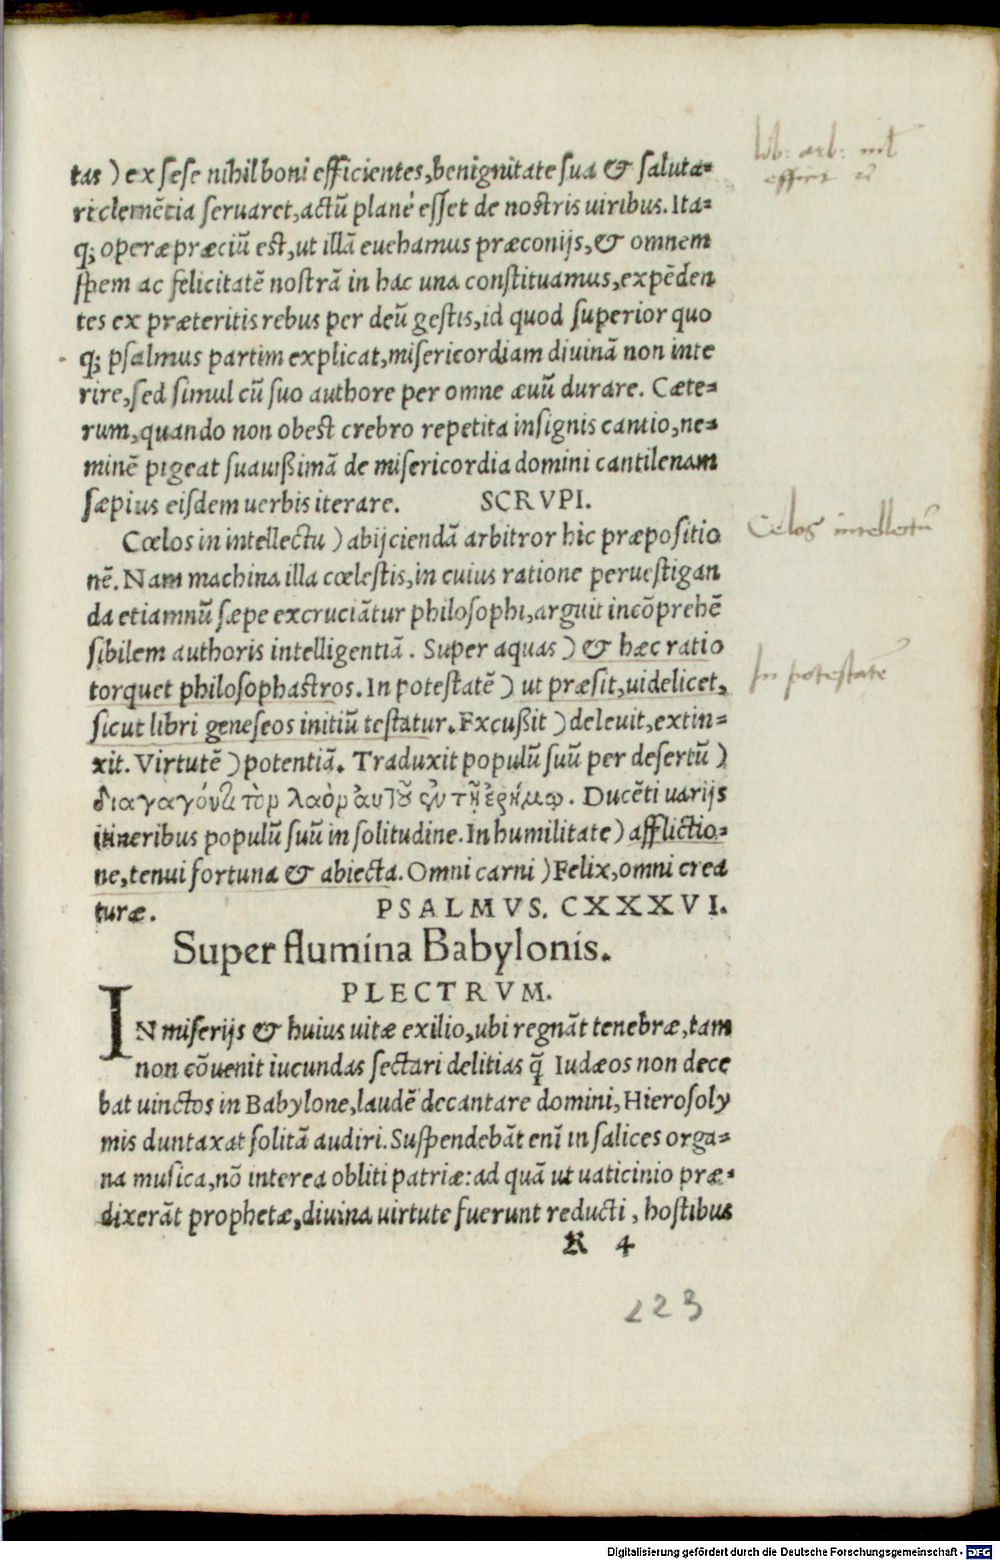 tas ) ex sese nihil boni efficientes, benignitate sua & saluta-
ri clemẽtia seruaret, actũ planè esset de nostris uiribus. Ita-
q; operæpræciũ est, ut illã euehamus præconijs, & omnem
spem ac felicitatẽ nostrã in hac una constituamus, expẽden
tes ex præteritis rebus per deũ gestis, id quod superior quo
q; psalmus partim explicat, misericordiam diuinã non inte
rire, sed simul cũ suo authore per omne æuũ durare. Cæte-
rum, quando non obest crebro repetita insignis cantio, ne-
minẽ pigeat suauißimã de misericordia domini cantilenam
sæpius eisdem uerbis iterare. SCRVPI.
Cœlos in intellectu ) abijciendã arbitror hic præpositio
nẽ. Nam machina illa cœlestis, in cuius ratione peruestigan
da etiamnũ sæpe excruciãtur philosophi, arguit incõprehẽ
sibilem authoris intelligentiã. Super aquas ) & hæc ratio
torquet philosophastros. In potestatẽ ) ut præsit, uidelicet,
sicut libri geneseos initiũ testatur. Excußit ) deleuit, extin-
xit. Virtutẽ ) potentiã. Traduxit populũ suũ per desertũ )
διαγαγόντι τὸν λαὸν αυτȣ͂ ἐν τῆ ἐρήμῳ. Ducẽti uarijs
itineribus populũ suũ in solitudine. In humilitate ) afflictio-
ne, tenui fortuna & abiecta. Omni carni ) Felix, omni crea
turæ. PSALMVS. CXXXVI.
Super flumina Babylonis.
PLECTRVM.
IN miserijs & huius uitæ exilio, ubi regnãt tenebræ, tam
non cõuenit iucundas sectari delitias q̃ Iudæos non dece
bat uinctos in Babylone, laudẽ decantare domini, Hierosoly
mis duntaxat solitã audiri. Suspendebãt enĩ in salices orga-
na musica, nõ interea obliti patriæ: ad quã ut uaticinio præ-
dixerãt prophetæ, diuina uirtute fuerunt reducti, hostibus
R 4
223
lib: arb: nil
Celos intellectũ
In potestatẽ
Digitalisierung gefördert durch die Deutsche Forschungsgemeinschaft - DFG